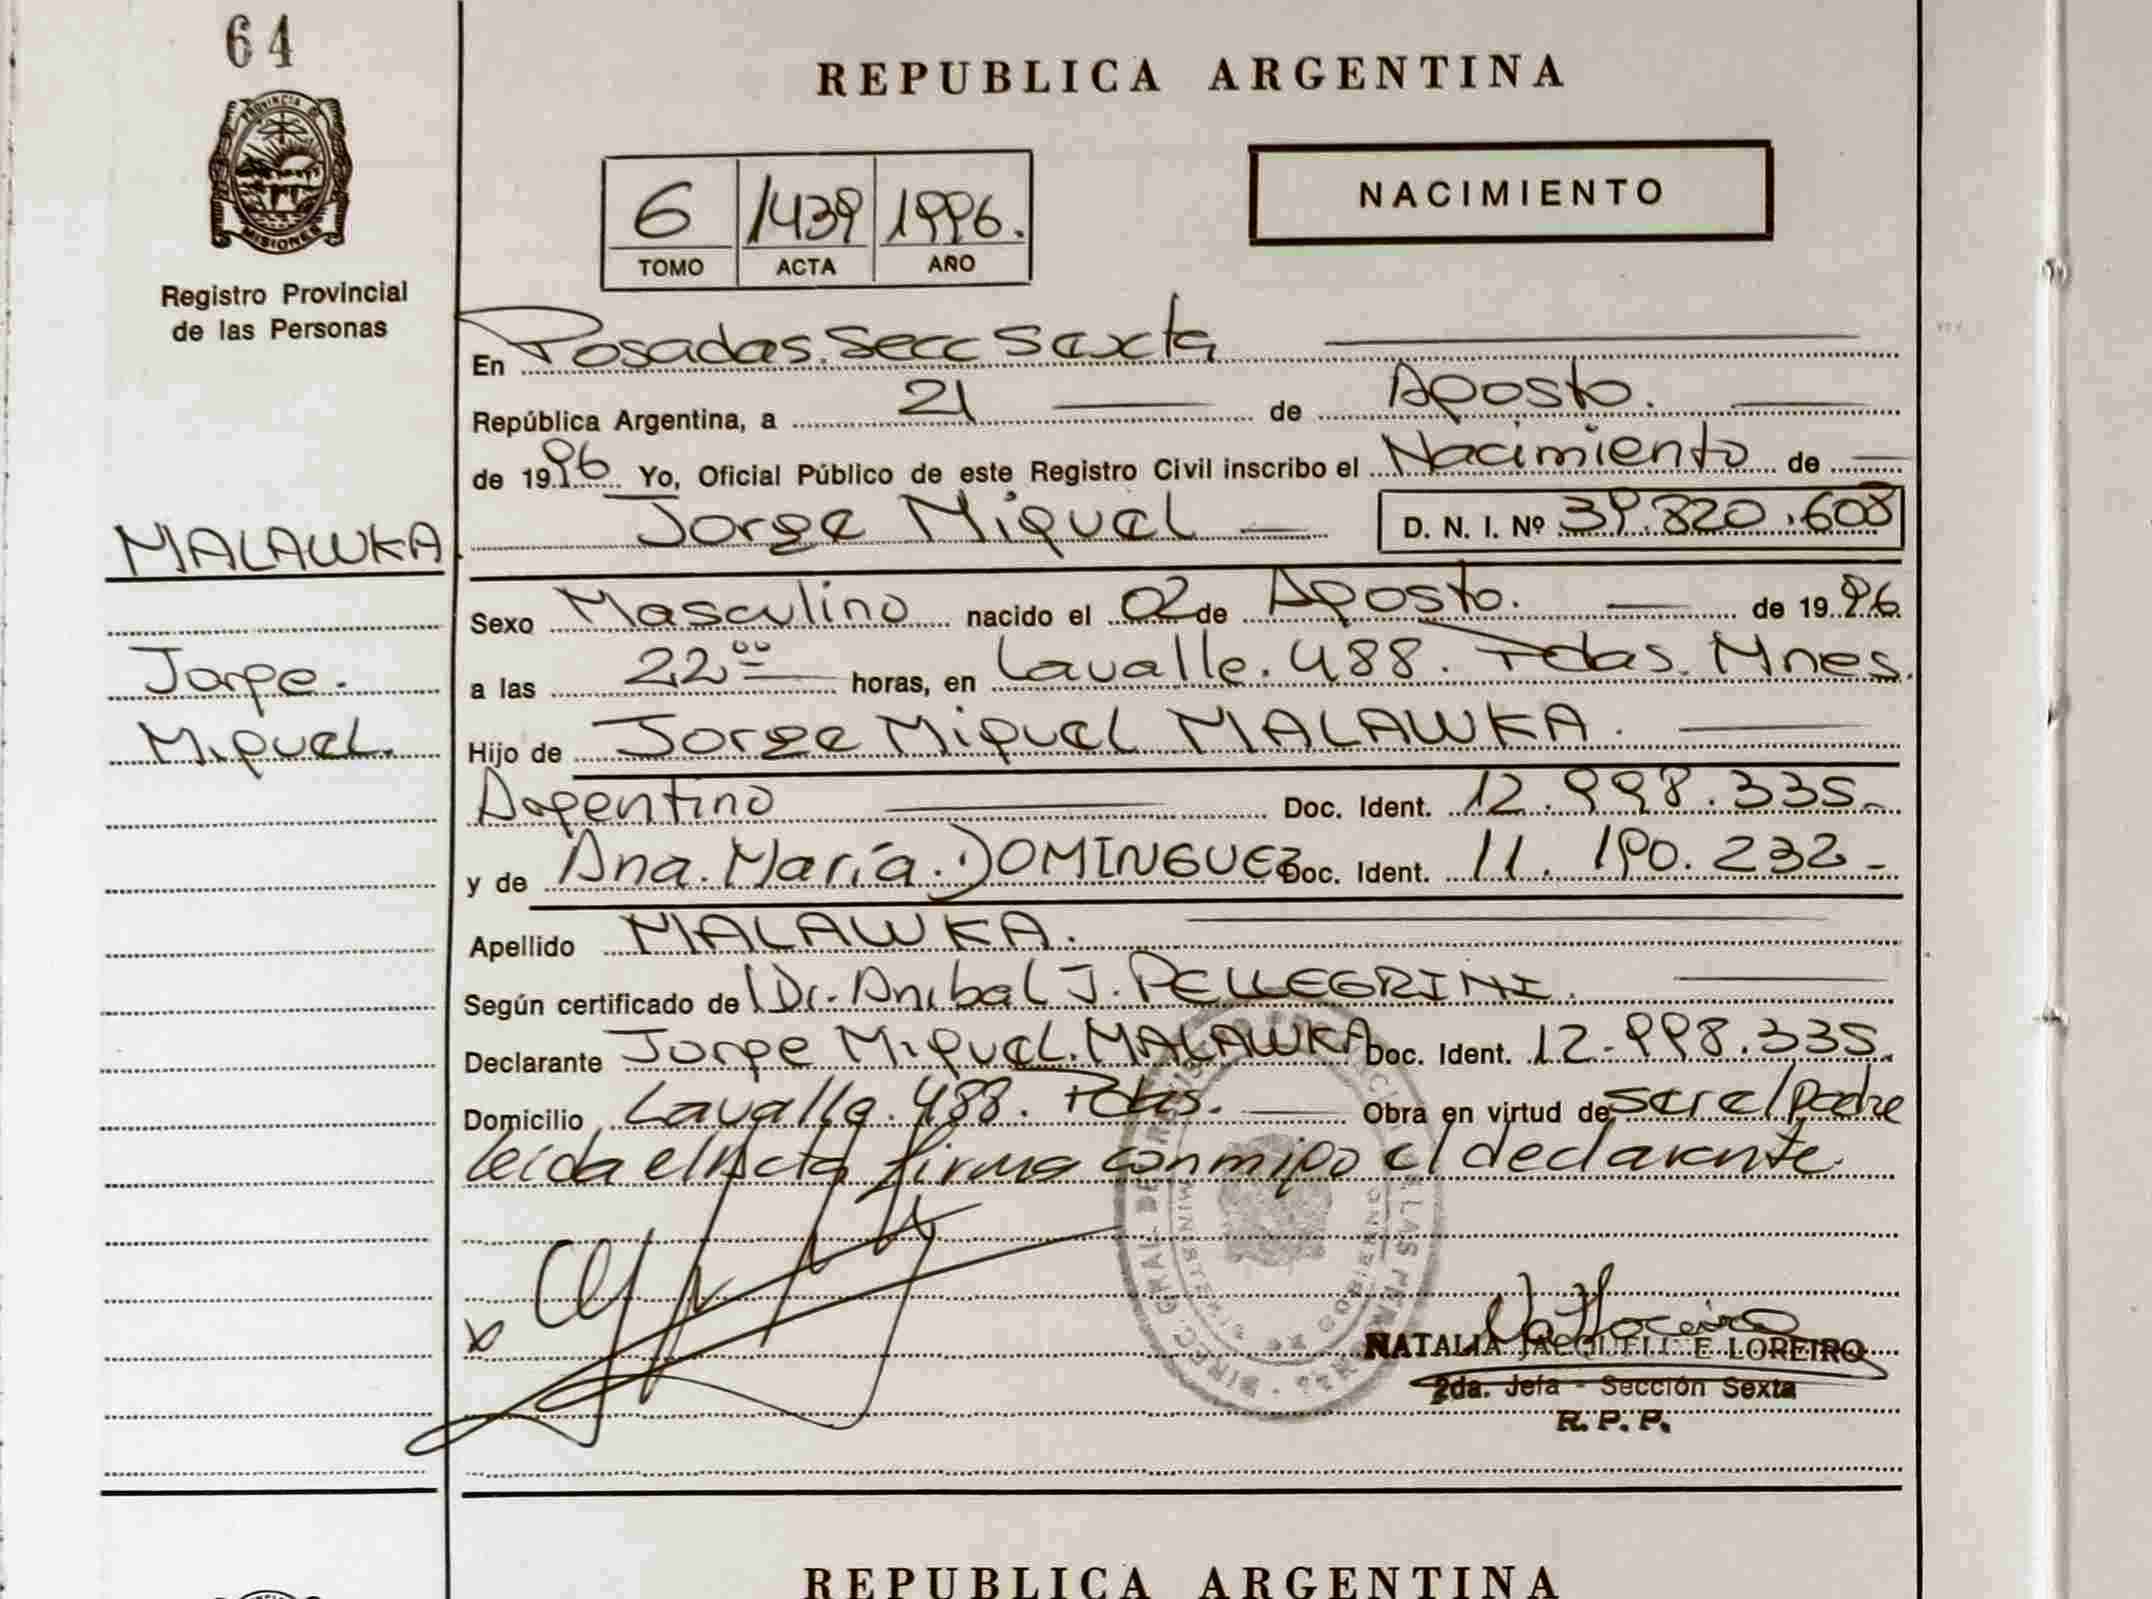 64
PROVINCIA DE
MISIONES
Registro Provincial
de las Personas
MALAWKA
Jorge.
Miguel.
REPUBLICA ARGENTINA
6 1439 1996.
TOMO ACTA AÑO
NACIMIENTO
En Posadas. Secc Sexta
República Argentina, a 21 de Agosto.
de 1996 Yo, Oficial Público de este Registro Civil inscribo el Nacimiento de
Jorge Miguel D. N. I. Nº 39.820.608
Sexo Masculino nacido el 02 de Agosto. de 1996.
a las 22 00 horas, en Lavalle. 488. Pdas. Mnes.
Hijo de Jorge Miguel MALAWKA.
Argentino Doc. Ident. 12.998.335.-
y de Ana. María. DOMINGUEZ Doc. Ident. 11. 190. 232.-
Apellido MALAWKA.
Según certificado de Dr. Anibal J. PELLEGRINI.
Declarante Jorge Miguel. MALAWKA Doc. Ident. 12.998.335.
Domicilio Lavalle. 488. Pdas. Obra en virtud de ser el padre
leída el Acta firma conmigo el declarante.
x
NATALIA JACQUELINE LOREIRO
2da. Jefa - Sección Sexta
R. P. P.
REPUBLICA ARGENTINA